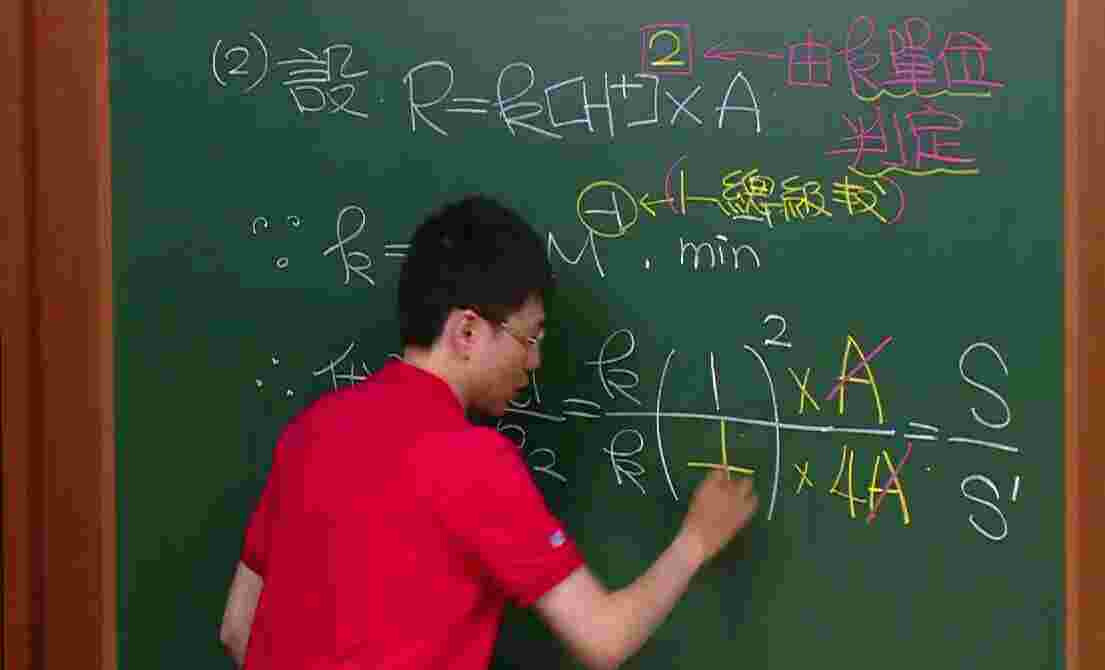 (2) 設 R=k[H⁺]²×A ← 由k單位
判定
∵ k= M⁻¹ · min ← (1-總級數)
∴ 代 = k(1)²×A / k(1 )×4A = S / S'
2